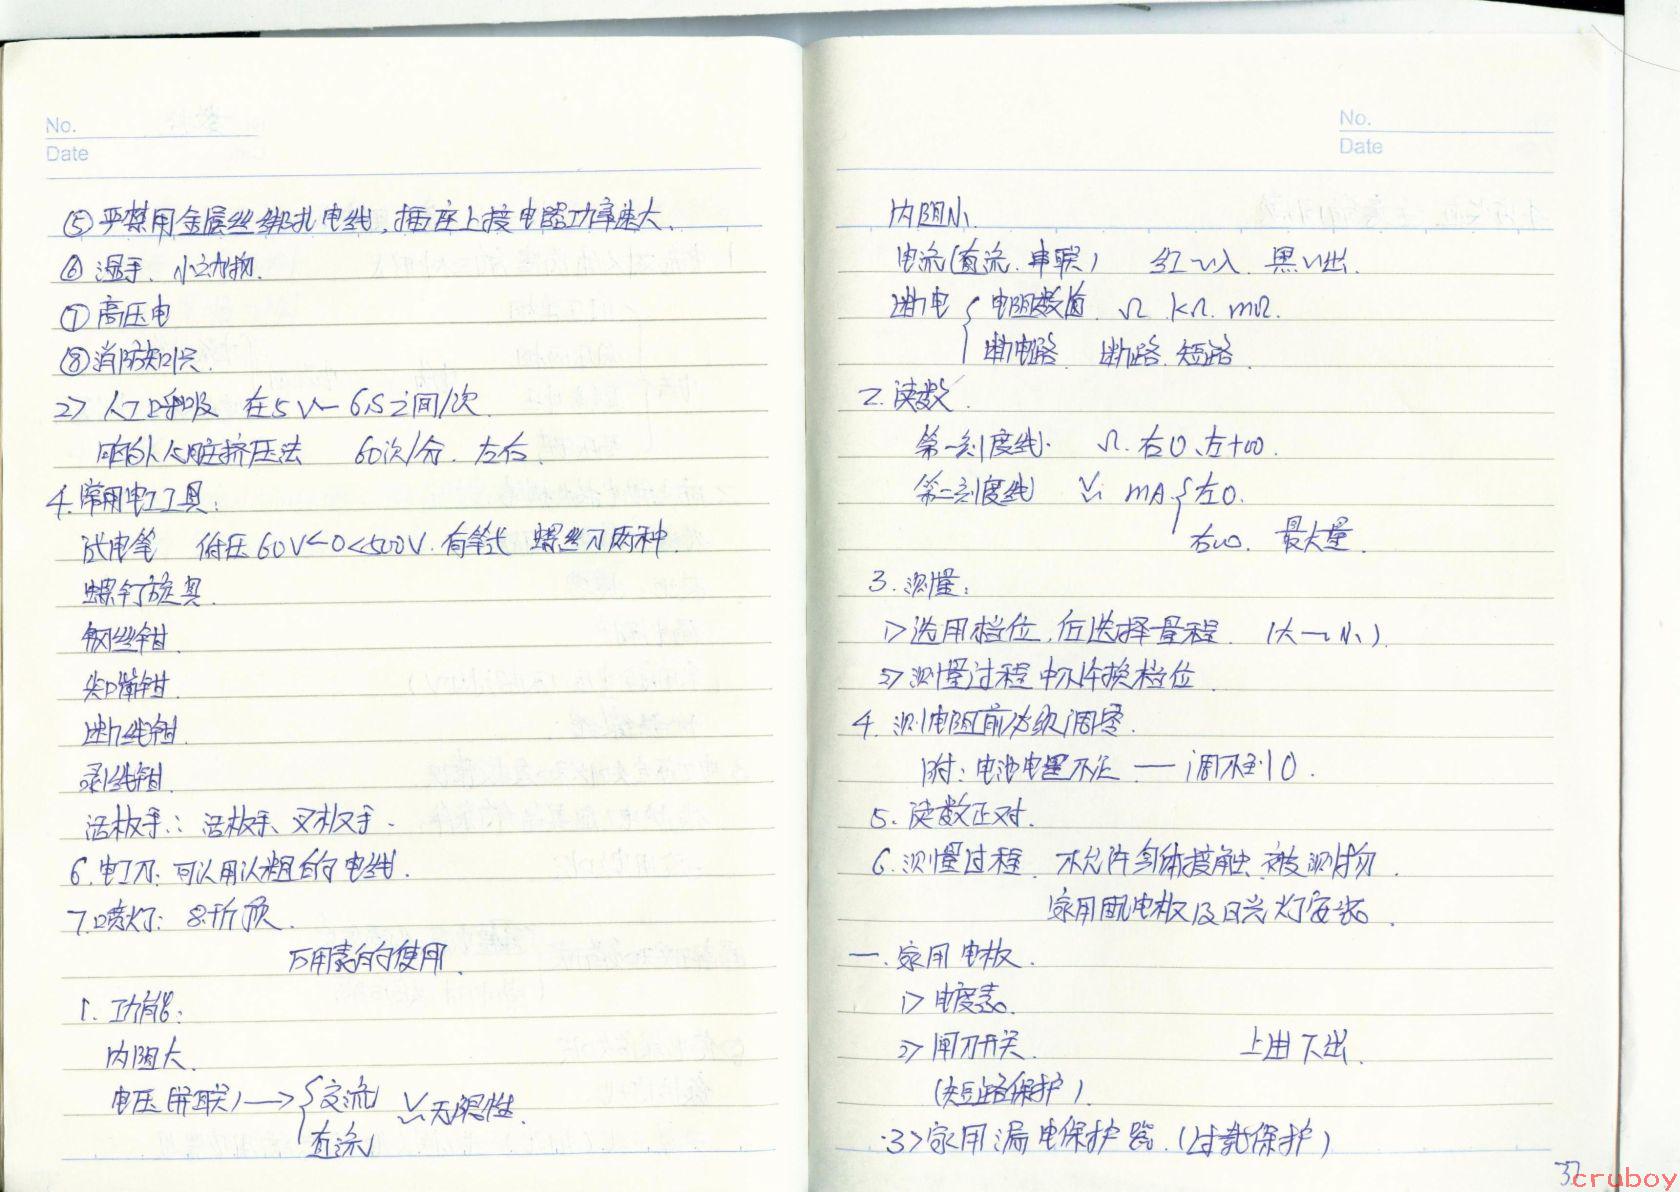 No.
Date
⑤严禁用金属丝绑扎电线，插座上接电器功率过大．
⑥湿手、小动物．
⑦高压电
⑧消防知识．
2> 人工呼吸 在5 ～ 6S之间/次．
胸外心脏挤压法 60次/分．左右．
4.常用电工工具：
试电笔 低压60V<U<500V．有笔式 螺丝刀两种．
螺钉旋具．
钢丝钳．
尖嘴钳．
断线钳．
剥线钳．
活板手：活板手、叉板手．
6.电工刀：可以用以粗的电线．
7.喷灯：
万用表的使用．
1. 功能：
内阻大．
电压(并联)—> { 交流 V 无限性．
直流
No.
Date
内阻小
电流(直流．串联) 红 入．黑 出．
断电 { 电阻数值．Ω．kΩ．mΩ．
断电路．断路．短路．
2.读数．
第一刻度线． Ω．右0、左+∞．
第二刻度线 V mA { 左0．
右 最大量．
3.测量：
1>选用档位，后选择量程．(大—小)．
2>测量过程中不许换档位．
4.测电阻前必须调零．
附：电池电量不足 — 调不到0．
5.读数正对．
6.测量过程．不允许身体接触被测物．
家用配电板及日光灯安装．
一．家用电板．
1> 电度表。
2> 闸刀开关． 上进下出．
(短路保护)．
3>家用漏电保护器．(过载保护)
37
cruboy